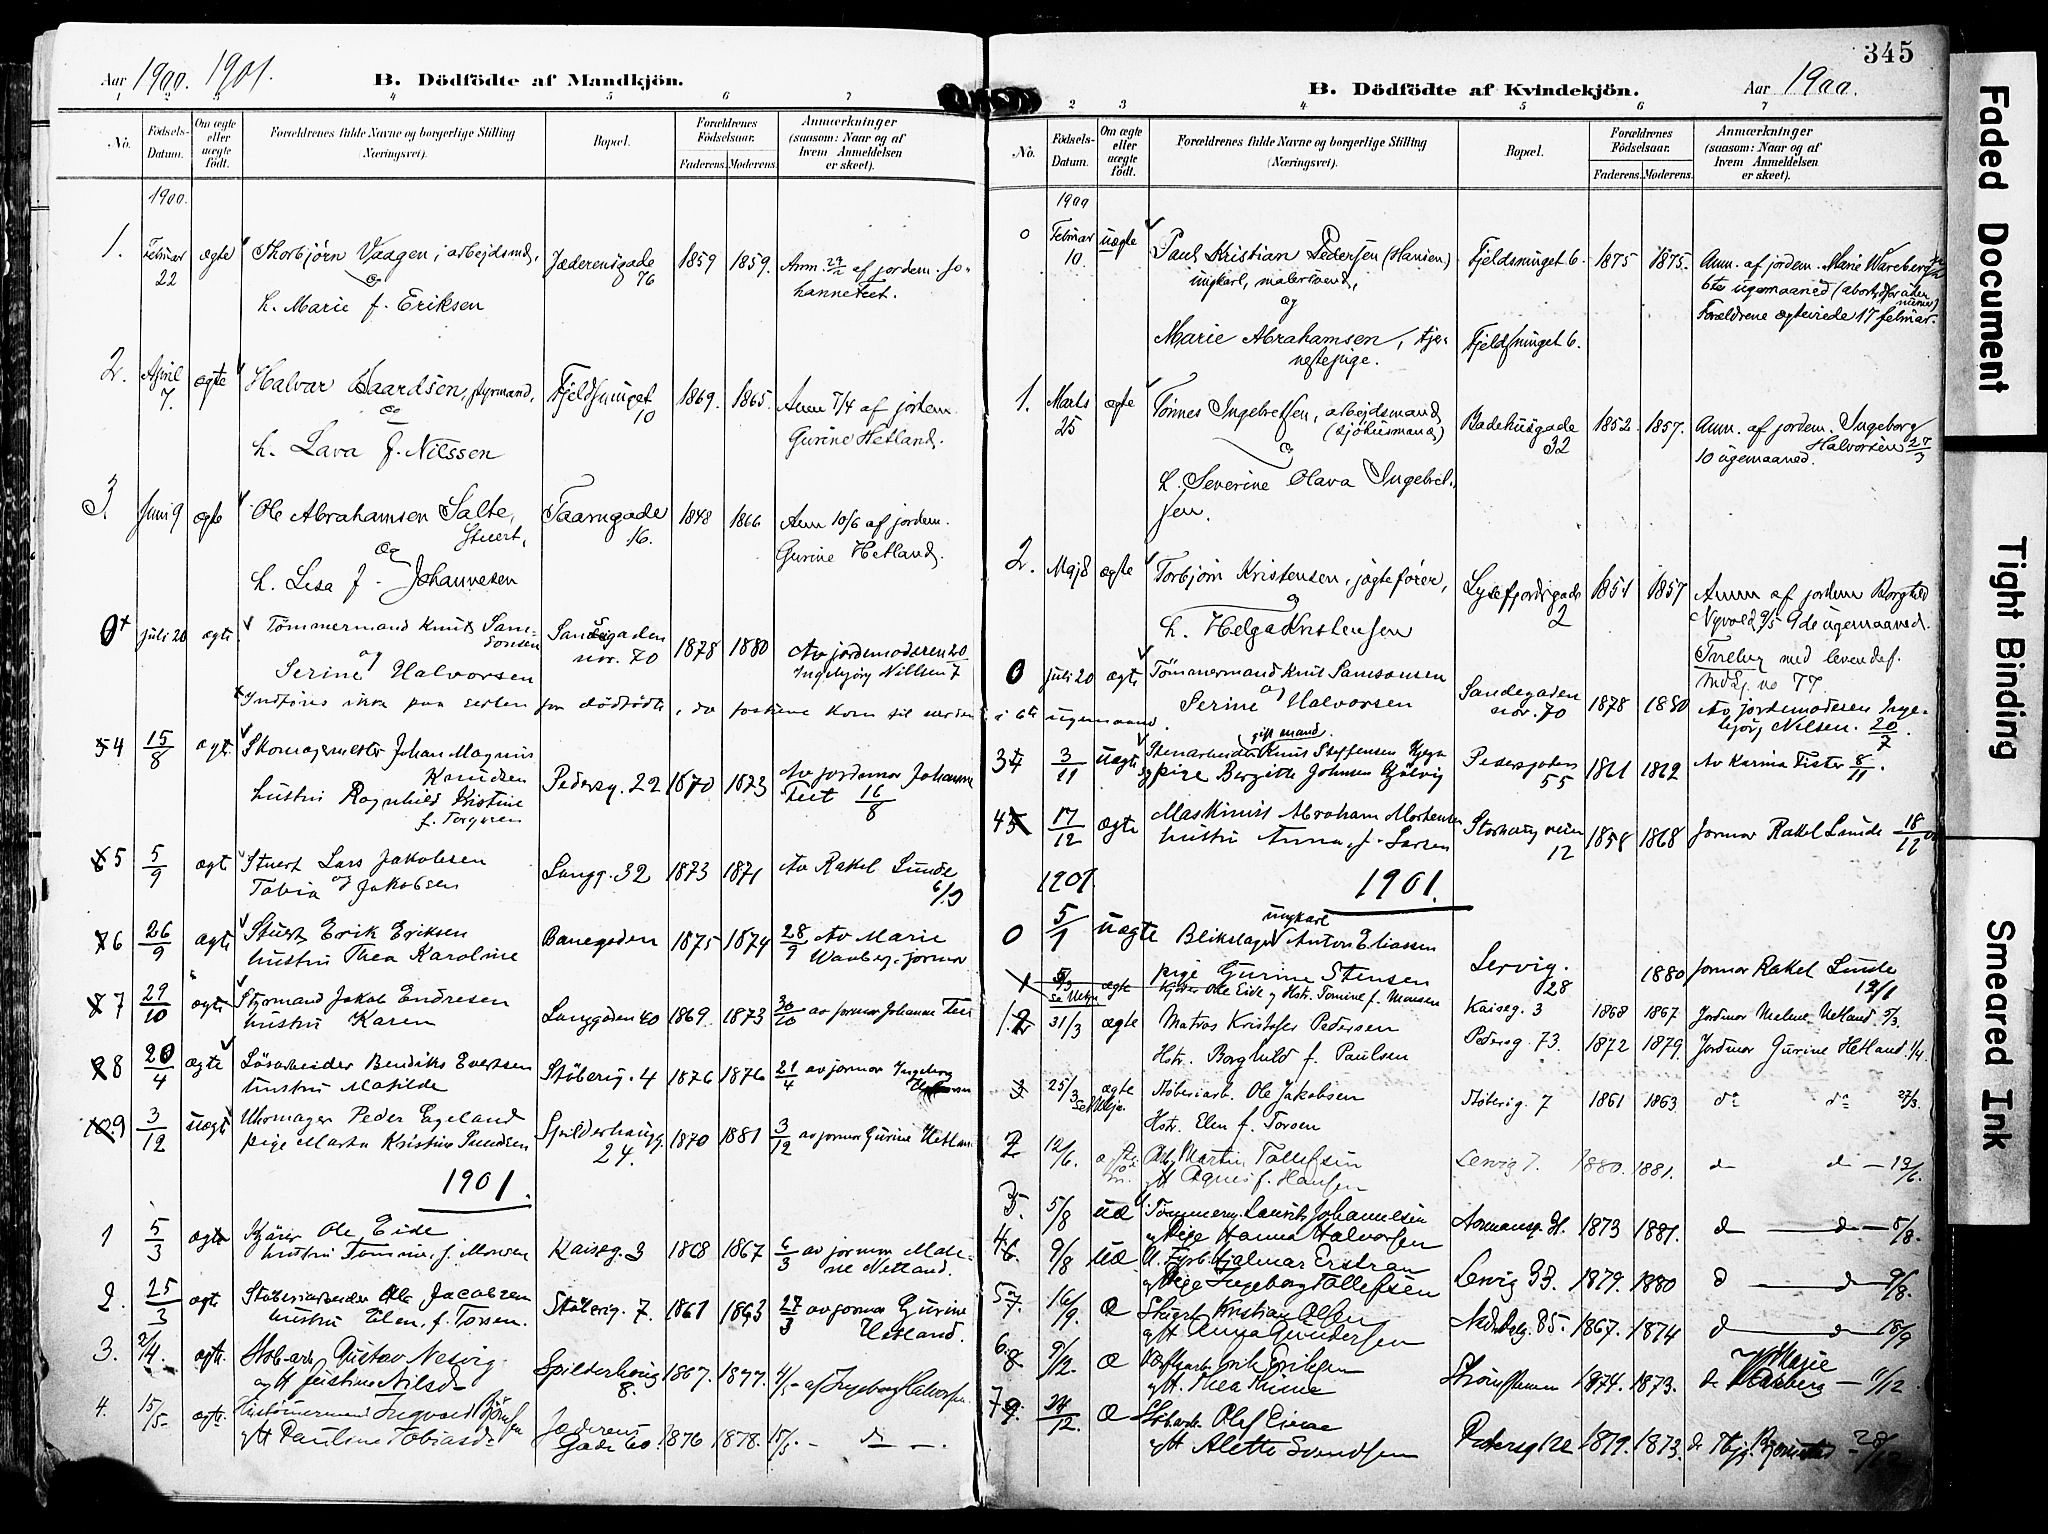 Aar 1900. 1901.
B. Dödfödte af Mandkjön.
1 2 3 4 5 6 7
No.
Födsels-
Datum.
Om ægte
eller
uægte
födt.
Forældrenes fulde Navne og borgerlige Stilling
(Næringsvei).
Bopæl.
Forældrenes
Födselsaar.
Faderens. Moderens.
Anmærkninger
(saasom: Naar og af
hvem Anmeldelsen
er skeet).
1900.
1. Februar 22 ægte Thorbjørn Vaagen, arbejdsmd, Jæderensgade 76 1859 1859. Anm. af jordem. Jo-
og hannе Teet.
h. Marie f. Eriksen
2. April 7. ægte Halvar Gaardsen, styrmand, Fjeldsmuget 10 1869. 1865. Anm 7/4 af jordem.
og Gurine Hetland.
h. Lava f. Nilssen
3. Juni 9 ægte Ole Abrahamsen Salte, Taarngade 16. 1848 1866 Anm 10/6 af jordem.
Stuert, Gurine Hetland.
og
h. Lisa f. Johannesen
0+ juli 20 ægte Tömmermand Knut Sam-
sonsen Sandsgaden nor. 70 1878 1880 Av jordemoderen 20/7
og Ingebjörg Nilsen
Serine Halvorsen
+ Indföres ikke paa serlen for dödfödte, da fostrene kom til verden i 6te ugemaaned.
4 15/8 ægte Skomagermester Johan Magnus
Knudsen Pedersg. 22 1870 1873 Av jordemor Johanne
hustru Ragnhild Kristine Teet 16/8
f. Torgersen
5 5/9 ægte Stuert Lars Jakobsen Langg. 32 1873 1871 Av Rakel Lunde
og 6/9
Tobia Jakobsen
6 26/9 ægte Stuert Erik Eriksen Banegaden 1875 1874 28/9 Av Marie
hustru Thea Karoline jormor
7 29/10 ægte Styrmand Jakob Endresen Langgaden 40 1869. 1873 30/10 av jormor Johanne Teet
hustru Karen
8 20/4 ægte Lösarbeider Bendiks Evertsen Stöberig. 4 1876 1876 21/4 av jormor Ingeborg
hustru Matilde
9 3/12 uægte Uhrmager Peder Egeland Spilderhaugg. 24. 1870 1881 3/12 av jormor Gurine Hetland
pige Marta Kristine
1901.
1 5/3 ægte Kjører Ole Eide Kaiseg. 3 1868 1867 6/3 av jormor Male-
hustru Tomine f. Monsen ne Netland.
2. 25/3 ægte Stöberiarbeider Ole Jacobsen Stöberig. 7. 1861 1863 27/3 av jormor Gurine
hustru Elen, f. Torsen. Hetland.
3. 2/4. ægte. Stöb-arb Gustav Nesvig Spilderhaug 8. 1867. 1877. af Ingeborg Halvorsen
og H Justine Nilsd
4. 15/5 ægte. Ingvald
og H Pauline Tobiasd Jæderens Gade 60. 1876 1878. 15/5. - do -
345
B. Dödfödte af Kvindekjön.
Aar 1900.
2 3 4 5 6 7
No.
Födsels-
Datum.
Om ægte
eller
uægte
födt.
Forældrenes fulde Navne og borgerlige Stilling
(Næringsvei).
Bopæl.
Forældrenes
Födselsaar.
Faderens. Moderens.
Anmærkninger
(saasom: Naar og af
hvem Anmeldelsen
er skeet).
1900
0 Februar 10. uægte Paul Kristian Pedersen (Hansen) Fjeldsmuget 6. 1875 1875. Anm. af jordem. Marie Wareberg
ungkarl, malersvend, 6te ugemaaned
og Forældrene ægteviede 17 februar.
Marie Abrahamsen, tje-
nestepige. Fjeldsmuget 6.
1. Marts 25 ægte Tönnes Ingebretsen, arbejdsmand Badehusgade 32 1852. 1857. Anm. af jordem. Ingeborg
(sjöhusmand) Halvorsen 27/3
og 10 ugemaaned.
h. Severine Olava Ingebret-
sen.
2. Maj 8 ægte Torbjörn Kristensen, jægtefører, Lysefjordsgade 2 1851 1857 Anm af jordem Borghild
og Nyvold 9/5 9de ugemaaned.
h. Helga Kristensen Tvilling med levendef.
no 77.
0 juli 20 ægte Tömmermand Knut Samsonsen Sandegaden nor. 70 1878 1880 Av jordemoderen Inge-
og björg Nilsen. 20/7
Serine Halvorsen
3 3/11 uægte gift mand.
Stenarbeider Knut Steffensen Pedersgaten 55 1861 1862 Av Karina Tister 8/11.
og pige Bergitte Johnsen
4 17/12 ægte Maskinist Abraham Mortensen Storhaugveien 12 1858 1868 Jormor Rakel Lunde 18/12
hustru Anna f. Larsen
1901 1901.
0 5/1 uægte ungkarl
Blikslager Anton Eliassen
pige Gurine Stensen Lervig. 28 1880 jormor Rakel Lunde
12/1
1 5/3 ægte Kjører Ole Eide og Hstr. Tomine f. Monsen Kaiseg. 3 1868 1867 Jordmor Malene Netland 5/3.
1. 31/3 ægte Matros Kristofer Pedersen Pedersg. 73. 1872 1879. Jordmor Gurine Hetland 1/4.
Hstr. Borghild f. Paulsen
3 25/3 ægte Stöberiarb. Ole Jakobsen Stöberig. 7 1861 1863. do do 27/3.
Hstr. Elen f. Torsen
2 12/6. Arb Martin Tollefsen Lervig 7. 1880. 1881. do do - 13/6.
og H Agnes f. Hansen
3. 5/8 uæ Tömmerm. Laurits Johannesen 1873 1881. d — d - 5/8.
og Pige Hanna Halvorsen
4. 9/8 uæ U. Fyrb. Hjalmar Erstran Lervig 33. 1879. 1880 d — d - 9/8.
og Pige Ingeborg Tollefsen
5 16/9. æ Stuert Kristian Olsen Nedstrbg. 85. 1867. 1874 d — d - 18/9
og H Anna Gundersen
6. 9/12. æ Erik Eriksen 1874. 1873. do Marie
og H. Thea Warberg - 11/12
7. 24/12. æ Stöbarb. Olaf
og H Alette Svendsen Pedersg 122 1879. 1873. do
Faded Document
Tight Binding
Smeared Ink